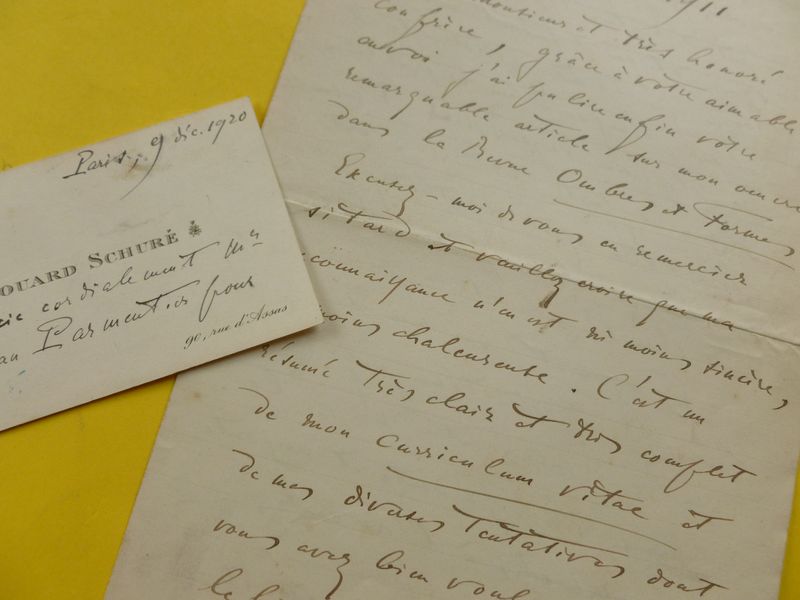 Paris, 9 déc. 1920
OUARD SCHURÉ
cie cordialement Mr
an Parmentier pour
90, rue d'Assas
1911
Monsieur et très honoré
confrère, grâce à votre aimable
envoi j'ai pu lire enfin votre
remarquable article sur mon oeuvre
dans la Revue Ombres et Formes
Excusez-moi de vous en remercier
si tard et veuillez croire que ma
connaissance n'en est ni moins sincère,
moins chaleureuse. C'est un
résumé très clair et très complet
de mon curriculum vitae et
de mes diverses tentatives dont
vous avez bien voul
le